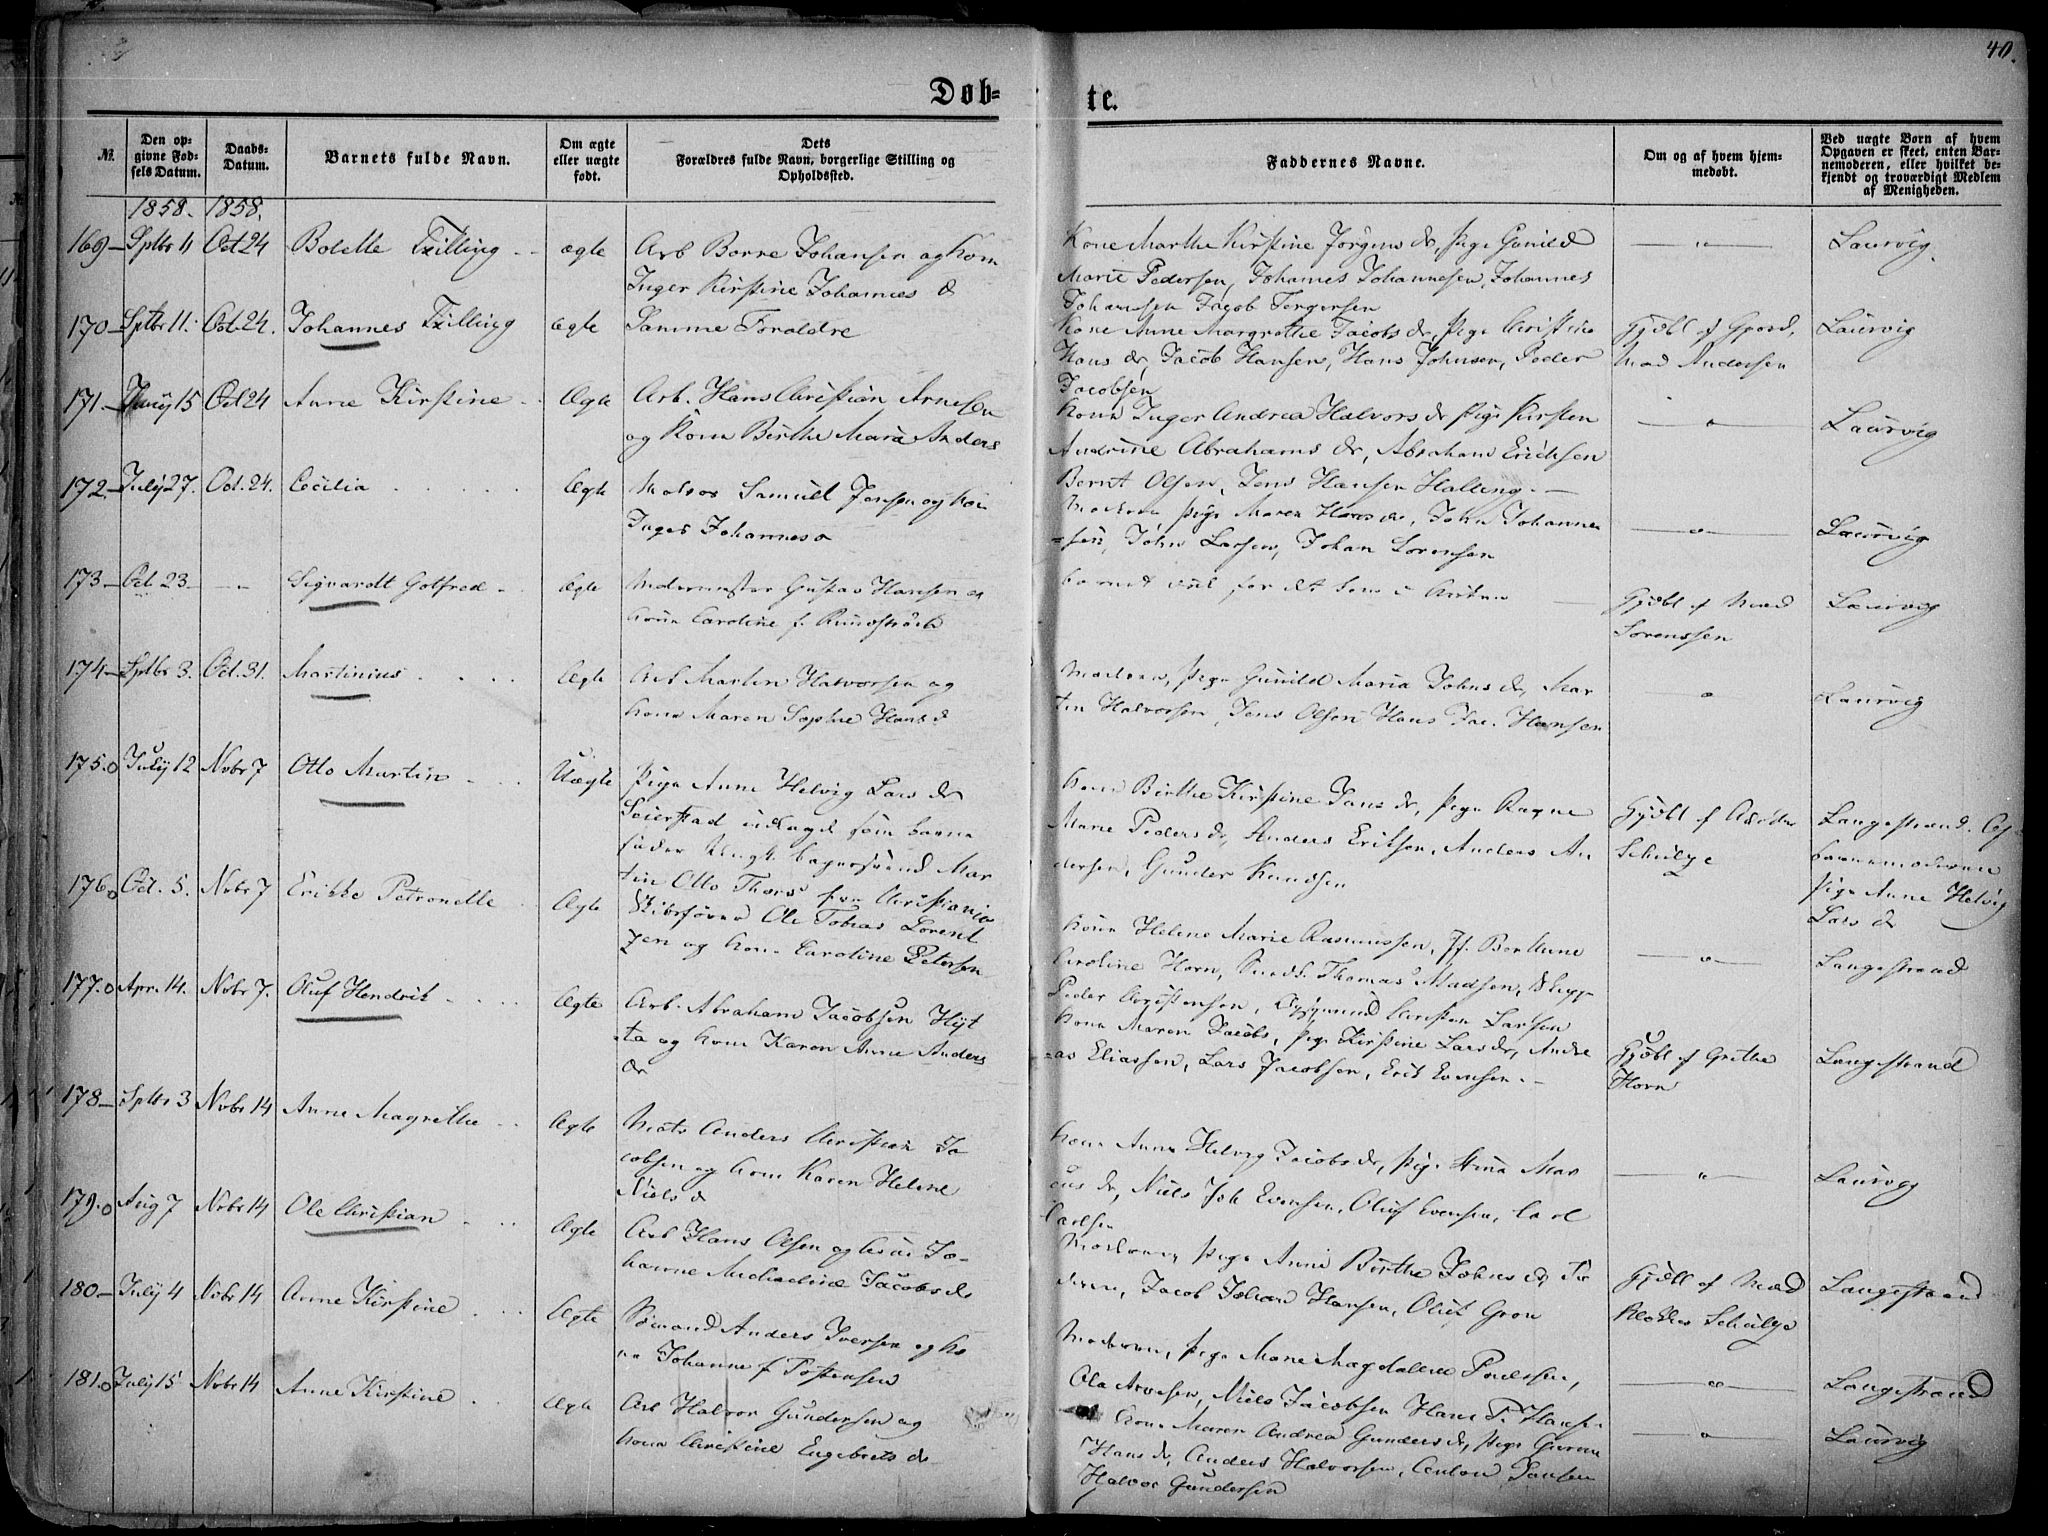 40.
Døb-
te.
№.
Den op-
givne Fød-
sels Datum.
Daabs-
Datum.
Barnets fulde Navn.
Om ægte
eller uægte
født.
Dets
Forældres fulde Navn, borgerlige Stilling og
Opholdssted.
Faddernes Navne.
Om og af hvem hjem-
medøbt.
Ved uægte Børn af hvem
Opgaven er skeet, enten Bar-
nemoderen, eller hvilket be-
kjendt og troværdigt Medlem
af Menigheden.
1858. 1858.
169 Sptbr 11 Oct 24 Bolette Tvilling ægte
Arb Borre Johansen og Kone
Inger Kirstine Johannes d
Kone Marthe Kirstine Jørgens dr, Pige Gunild
Marie Pedersen, Johannes Johannesen, Johannes
Johansen Jacob Torgersen
Laurvig
170 Sptbr 11. Oct. 24. Johannes Tvilling ægte
Samme Forældre
Kone Anne Margrethe Jacobs dr, Pige Christine
Hans dr, Jacob Hansen, Hans Johnsen, Peder
Jacobsen
Gjøbt af
Mad Andersen
Laurvig
171 15 Oct 24 Anne Kirstine Ægte
Arb. Hans Christian Arnesen
og Kone Birthe Maria Anders
Kone Inger Andrea Halvors dr Pige Kirsten
Andrine Abrahams dr, Abraham Ericksen
Bernt Olsen, Jens Hansen Halling.
Laurvig
172 July 27. Oct. 24. Cecilia Ægte
Matros Samuel Jensen og Kone
Inger Johannes d
Moderen Pige Maren Hans dr, John Johanne
=sen, John Larsen, Johan Sorensen
Laurvig
173 Oct 23 Sigvardt Gotfred Ægte
Gustav Hansen og
Kone Caroline f.
Gjøbt af Mad
Sorenssen
Laurvig
174 Sptbr 3. Oct. 31. Martinius Ægte
Arb Martin Halvorsen og
Kone Maren Sophie Hans d
Moderen, Pige Gunild Maria Johns dr, Mar
tin Halvorsen, Jens Olsen Hans Jac. Hansen
Laurvig
175. July 12 Nvbr 7 Otto Martin Uægte
Pige Anne Helvig Lars dr
Seierstad udlagt som barne
fader Ungk. bagersvend Mar
tin Otto Thors fra Christiania
Kone Birthe Kirstine Jans dr, Pige Ragne
Marie Peders dr, Anders Eriksen, Anders An
dersen, Gunder Knudsen
Gjøbt af
Schulze
Langestrand. Af
barnemoderen
Pige Anne Helvig
Lars dr
176. Oct. 5. Nvbr 7 Erikke Petronelle Ægte
Skibsfører Ole Tobias Lorent
zen og Kone Caroline Petersen
Kone Helene Marie Rasmussen, Jf. Berthine
Caroline Horn, Thomas Madsen,
Peder Christensen, Christen Larsen
Langestrand
177. Apr. 14. Nvbr 7. Oluf Hendrik Ægte
Arb. Abraham Jacobsen Hyt
ta og Kone Karen Anne Anders
dr
Kone Maren Jacobs, Pige Kirstine Lars dr, Andre
=as Eliassen, Lars Jacobsen, Erik Evensen.
Gjøbt af Grethe
Horn
Langestrand
178 Sptbr 3 Nvbr 14 Anne Magrethe Ægte
Mats Anders Christian Ja
cobsen og Kone Karen Helene
Niels d
Kone Anne Helvig Jacobs dr, Pige Stina Mar
cus dr, Niels Joh Evensen, Oluf Evensen, Carl
Carlsen
Laurvig
179. Aug 7 Nvbr 14 Ole Christian Ægte
Arb Hans Olsen og Kone Jo-
hanne Michaeline Jacobs dr
Moderen, Pige Anne Birthe Johns dr,
Jacob Johan Hansen, Oluf Gron
Gjøbt af Mad
Klokker Schulze
Langestrand
180 July 4 Nvbr 14 Anne Kirstine Ægte
Sømand Anders Iversen og Ko
ne Johanne f Tostensen
Moderen, Pige Marie Magdalene Poulssen,
Ole Arnesen, Niels Jacobsen Hans T. Hansen
Langestrand
181. July 15 Nvbr 14 Anne Kirstine Ægte
Arb Halvor Gundersen og
Kone Christine Engebrets dr
Kone Maren Andrea Gunders dr, Pige Gurine
Hans dr, Anders Halvorsen, Anton Jansen
Halvor Gundersen
Laurvig